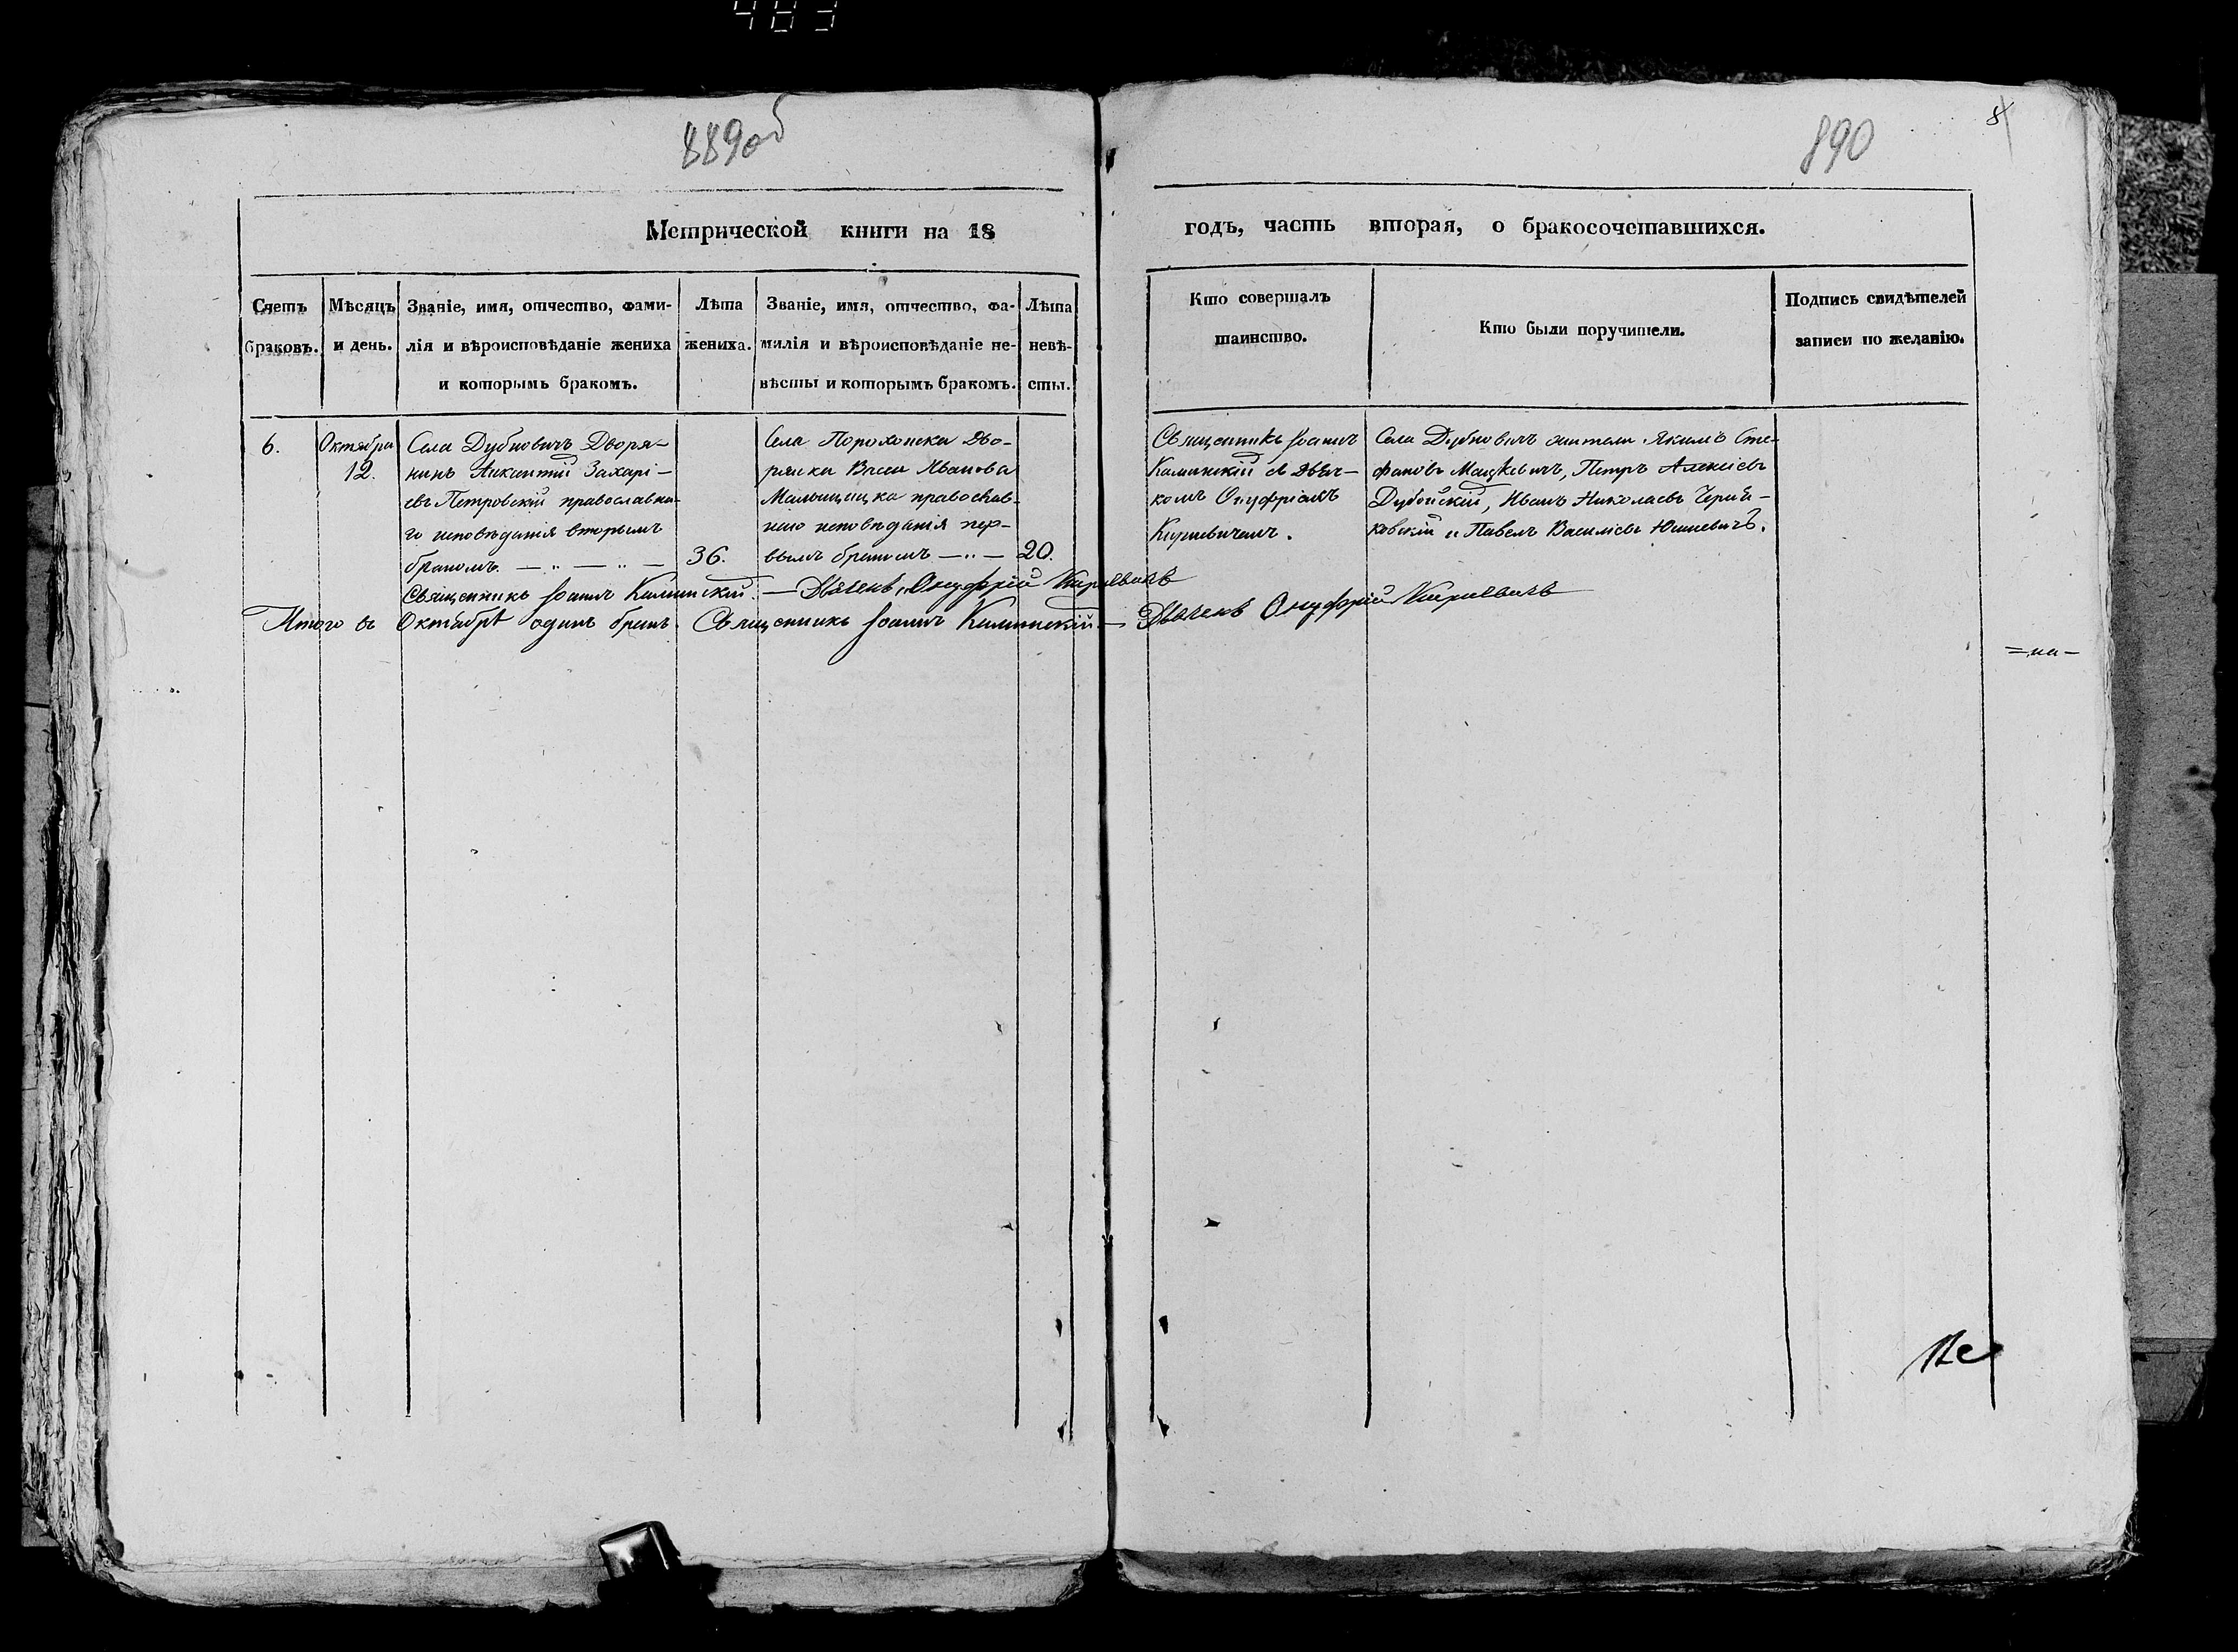 483
889об
890
8
Метрической книги на 18
годъ, часть вторая, о бракосочетавшихся.
Счетъ браковъ.
Мѣсяцъ и день.
Званіе, имя, отчество, фами-
лія и вѣроисповѣданіе жениха
и которымъ бракомъ.
Лѣта
жениха.
Званіе, имя, отчество, фа-
милія и вѣроисповѣданіе не-
вѣсты и которымъ бракомъ.
Лѣта
невѣ-
сты.
Кто совершалъ
таинство.
Кто были поручители.
Подпись свидѣтелей
записи по желанію.
6.
Октября
12.
Села Дубновичъ Дворя-
нинъ Викентій Захарі-
евъ Петровскій православна-
го исповѣданія вторымъ
бракомъ. — „ — „ —
36.
Села Порохонска Дво-
рянка Иванова
православ-
наго исповѣданія пер-
вымъ бракомъ — „ —
20.
Священникъ Іоаннъ
Калинскій съ Дьяч-
комъ Онуфріемъ
Кириевичемъ.
Села Дубновичъ жители Якимъ Сте-
фановъ Мацкевичъ, Петръ Алексіевъ
Дубойскій, Иванъ Николаевъ
и Павелъ Василіевъ Юшкевичъ.
Священникъ Іоаннъ Калинскій. — Дьячекъ Онуфрій Кириевичъ
Итого въ Октябрѣ одинъ бракъ. Священникъ Іоаннъ Калинскій — Дьячекъ Онуфрій Кириевичъ
=на—